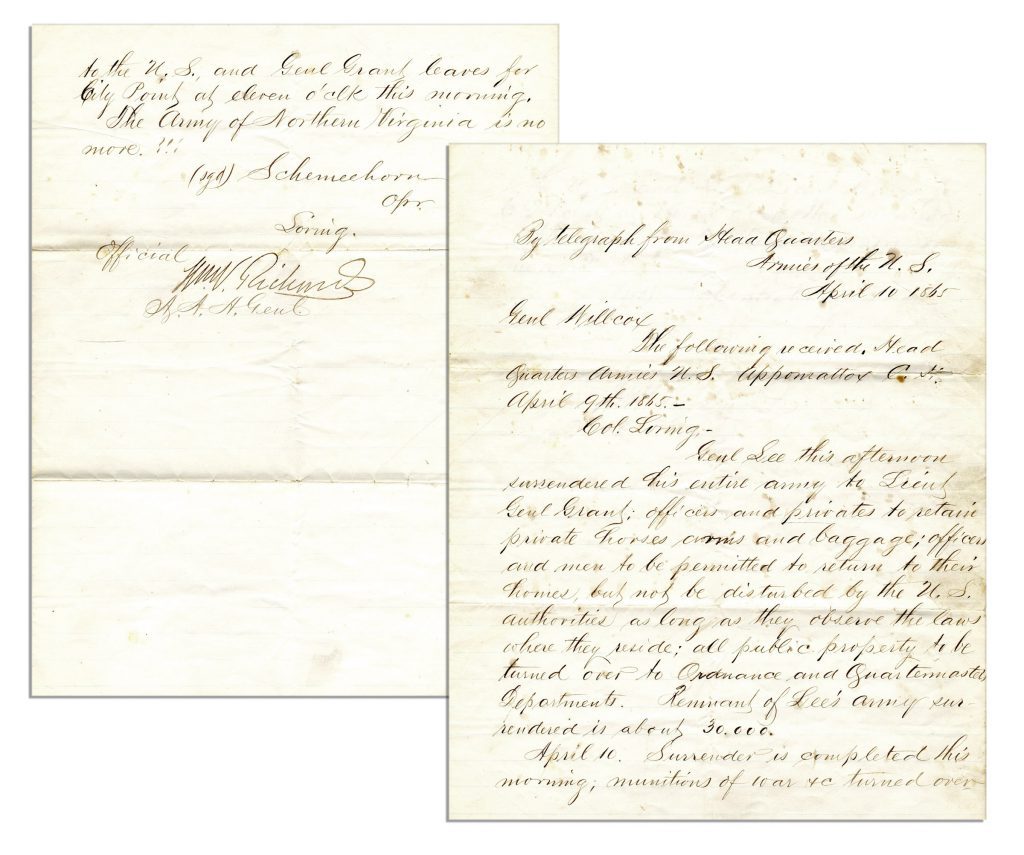 By telegraph from Head Quarters
Armies of the U. S.
April 10 1865
Genl Willcox
The following received. Head
Quarters Armies U. S. Appomattox C. H.
April 9th. 1865.-
Col. Loring,-
Genl Lee this afternoon
surrendered his entire army to Lieut
Genl Grant; officers and privates to retain
private horses arms and baggage; officers
and men to be permitted to return to their
homes, but not be disturbed by the U. S.
authorities as long as they observe the laws
where they reside; all public property to be
turned over to Ordnance and Quartermasters
Departments. Remnant of Lee's army sur-
rendered is about 30.000.
April 10. Surrender is completed this
morning; munitions of war &c turned over
to the U. S., and Genl Grant leaves for
City Point at eleven o'clk this morning.
The Army of Northern Virginia is no
more. !!!
(sgd) Schemeehorn
Opr.
Loring.
Official
Wm V. Richards
A. A. A. Genl